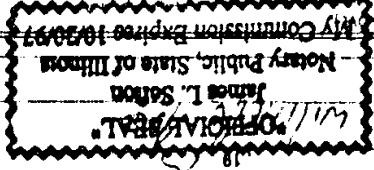 "OFFICIAL SEAL"
James L.
Notary Public, State of Illinois
My Commission Expires 10/20/97